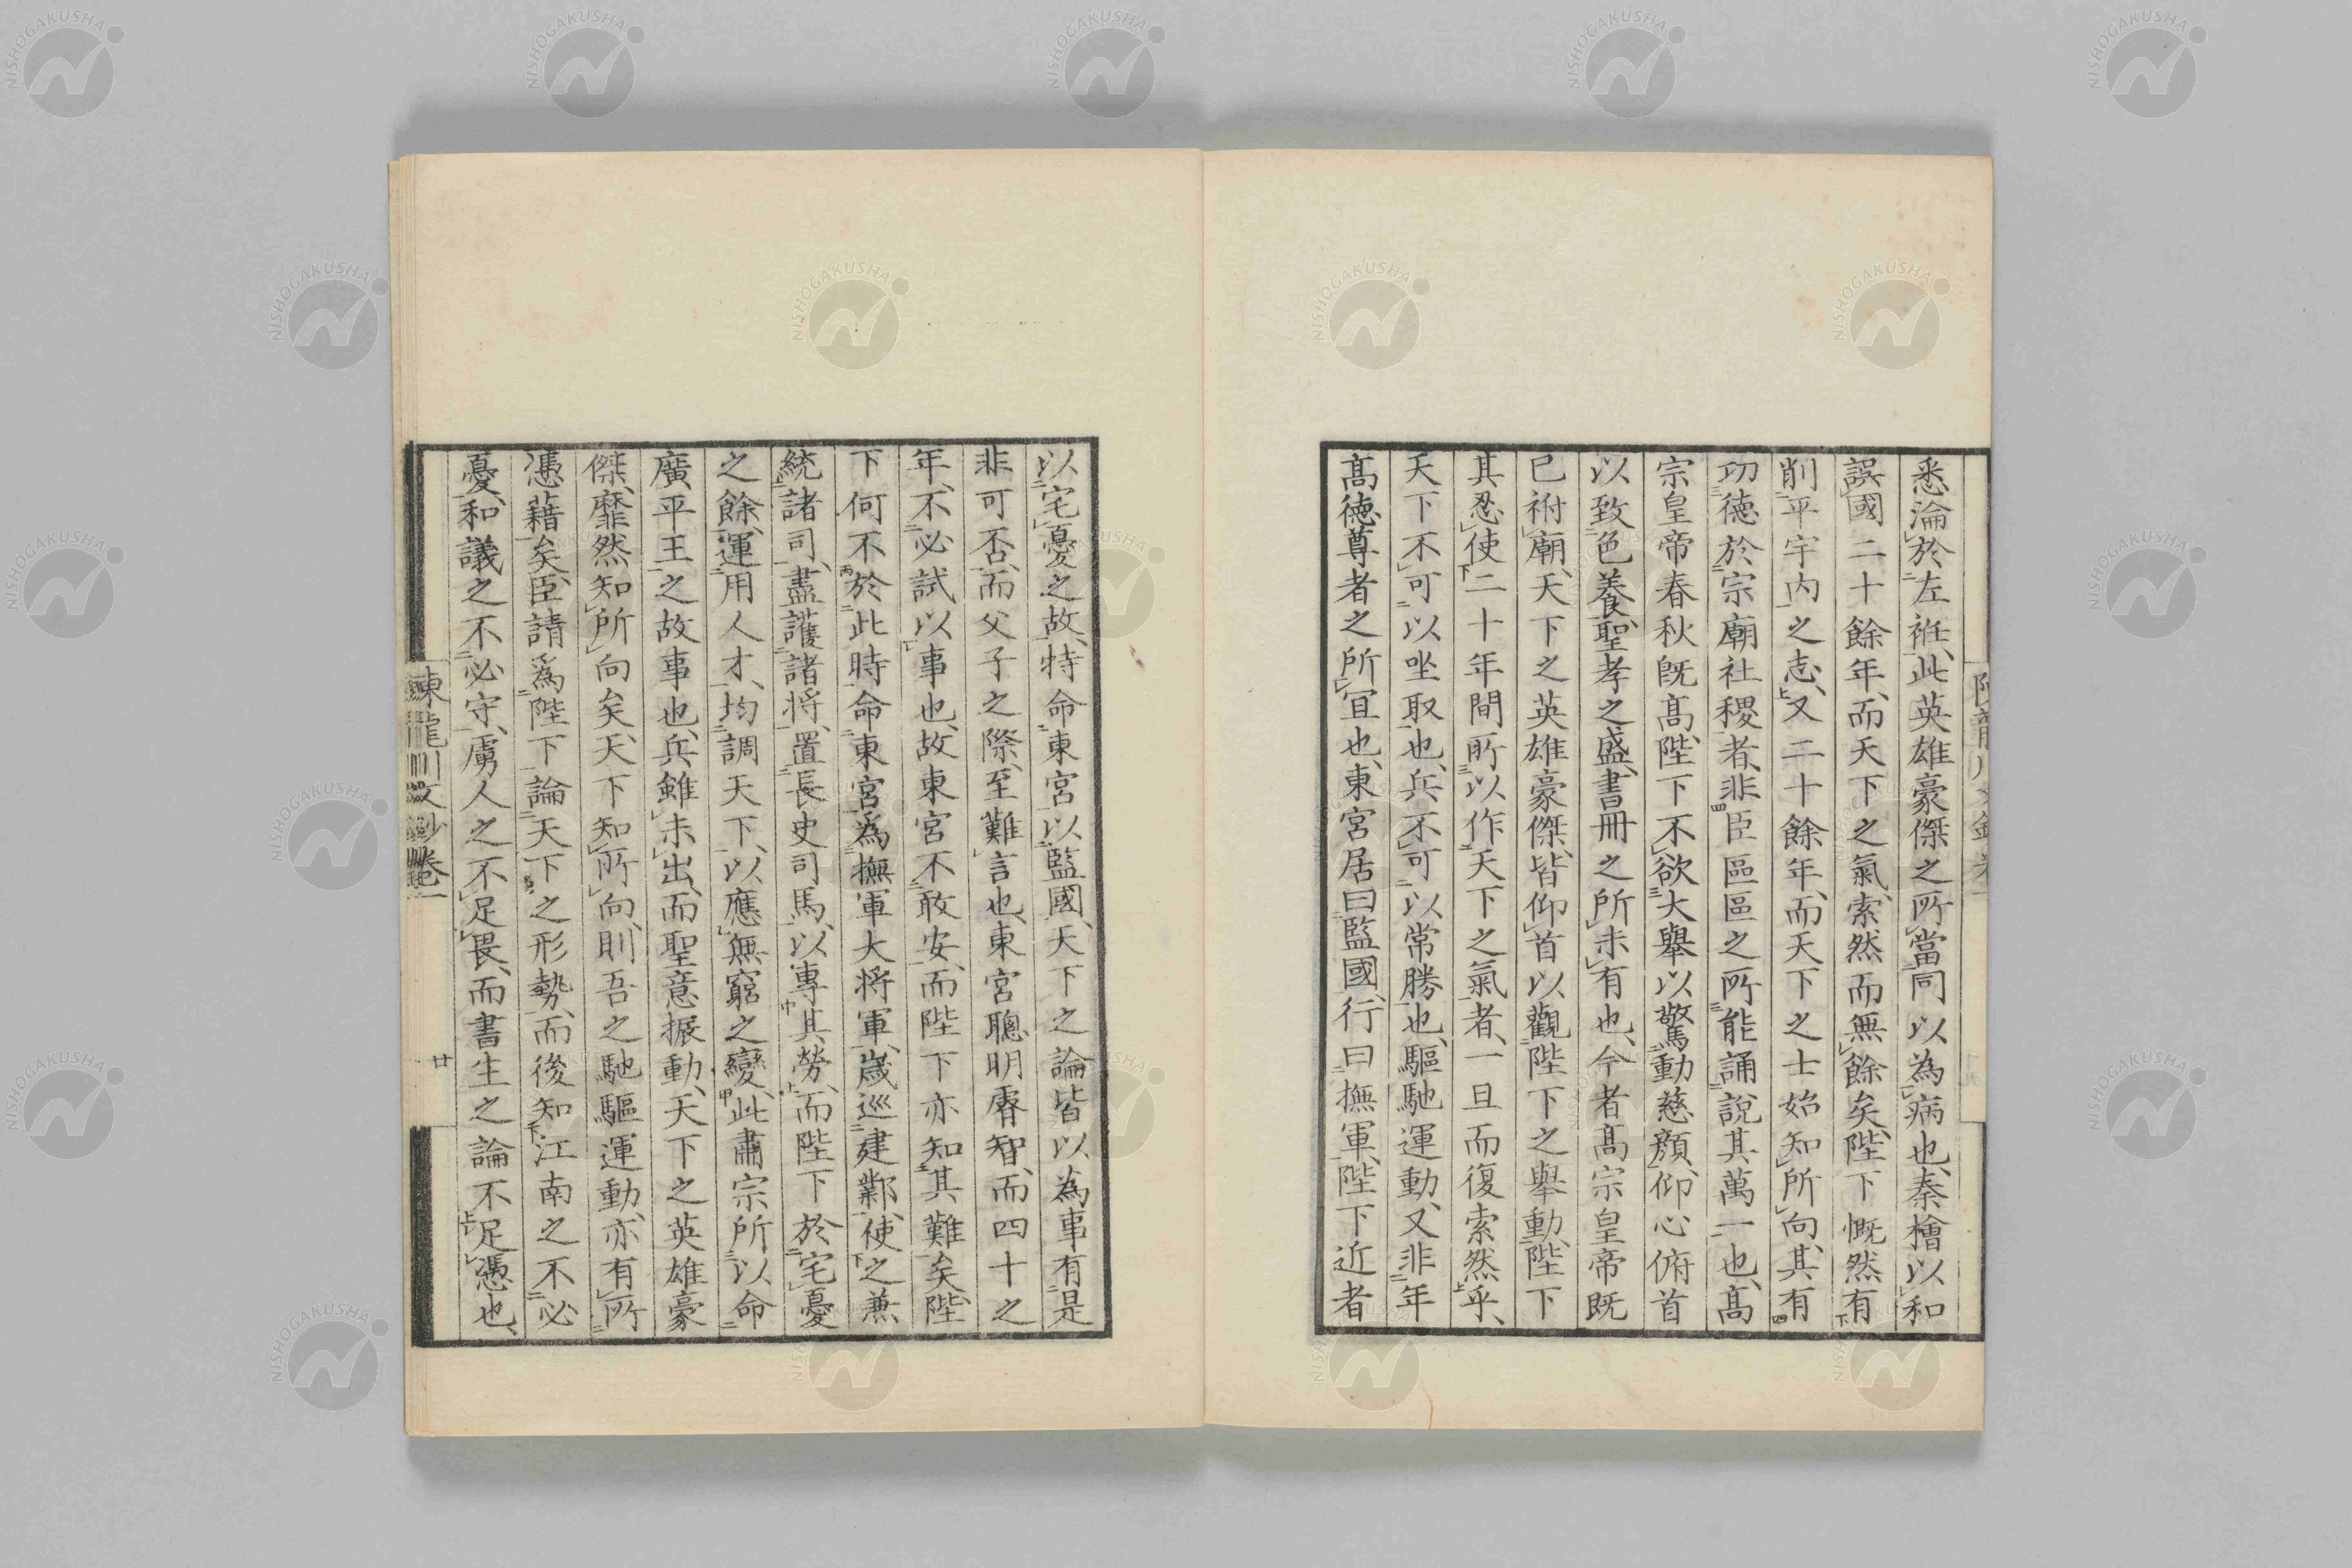 悉淪於左袵、此英雄豪傑之所當同以為病也、秦檜以和
誤國二十餘年、而天下之氣、索然而無餘矣、陛下慨然有
削平宇内之志、又二十餘年、而天下之士始知所向、其有
功德於宗廟社稷者、非臣區區之所能誦說其萬一也、髙
宗皇帝春秋旣髙、陛下不欲大舉以驚動慈顔、仰心俯首
以致色養、聖孝之盛、書冊之所未有也、今者髙宗皇帝既
已祔廟、天下之英雄豪傑、皆仰首以觀陛下之舉動、陛下
其忍使二十年間所以作天下之氣者、一旦而復索然乎、
天下不可以坐取也、兵不可以常勝也、驅馳運動、又非年
髙德尊者之所宜也、東宮居曰監國、行曰撫軍、陛下近者
以宅憂之故、特命東宮以監國、天下之論皆以為事有是
非可否、而父子之際、至難言也、東宮聰明睿智、而四十之
年、不必試以事也、故東宮不敢安、而陛下亦知其難矣、陛
下何不於此時命東宮為撫軍大将軍、歲巡建鄴、使之兼
統諸司、盡護諸将、置長史司馬、以專其勞、而陛下於宅憂
之餘、運用人才、均調天下、以應無窮之變、此肅宗所以命
廣平王之故事也、兵雖未出、而聖意振動、天下之英雄豪
傑、靡然知所向矣、天下知所向、則吾之馳驅運動、亦有所
憑藉矣、臣請爲陛下論天下之形勢、而後知江南之不必
憂、和議之不必守、虜人之不足畏、而書生之論不足憑也、
陳龍川文鈔卷一
廿
NISHOGAKUSHA